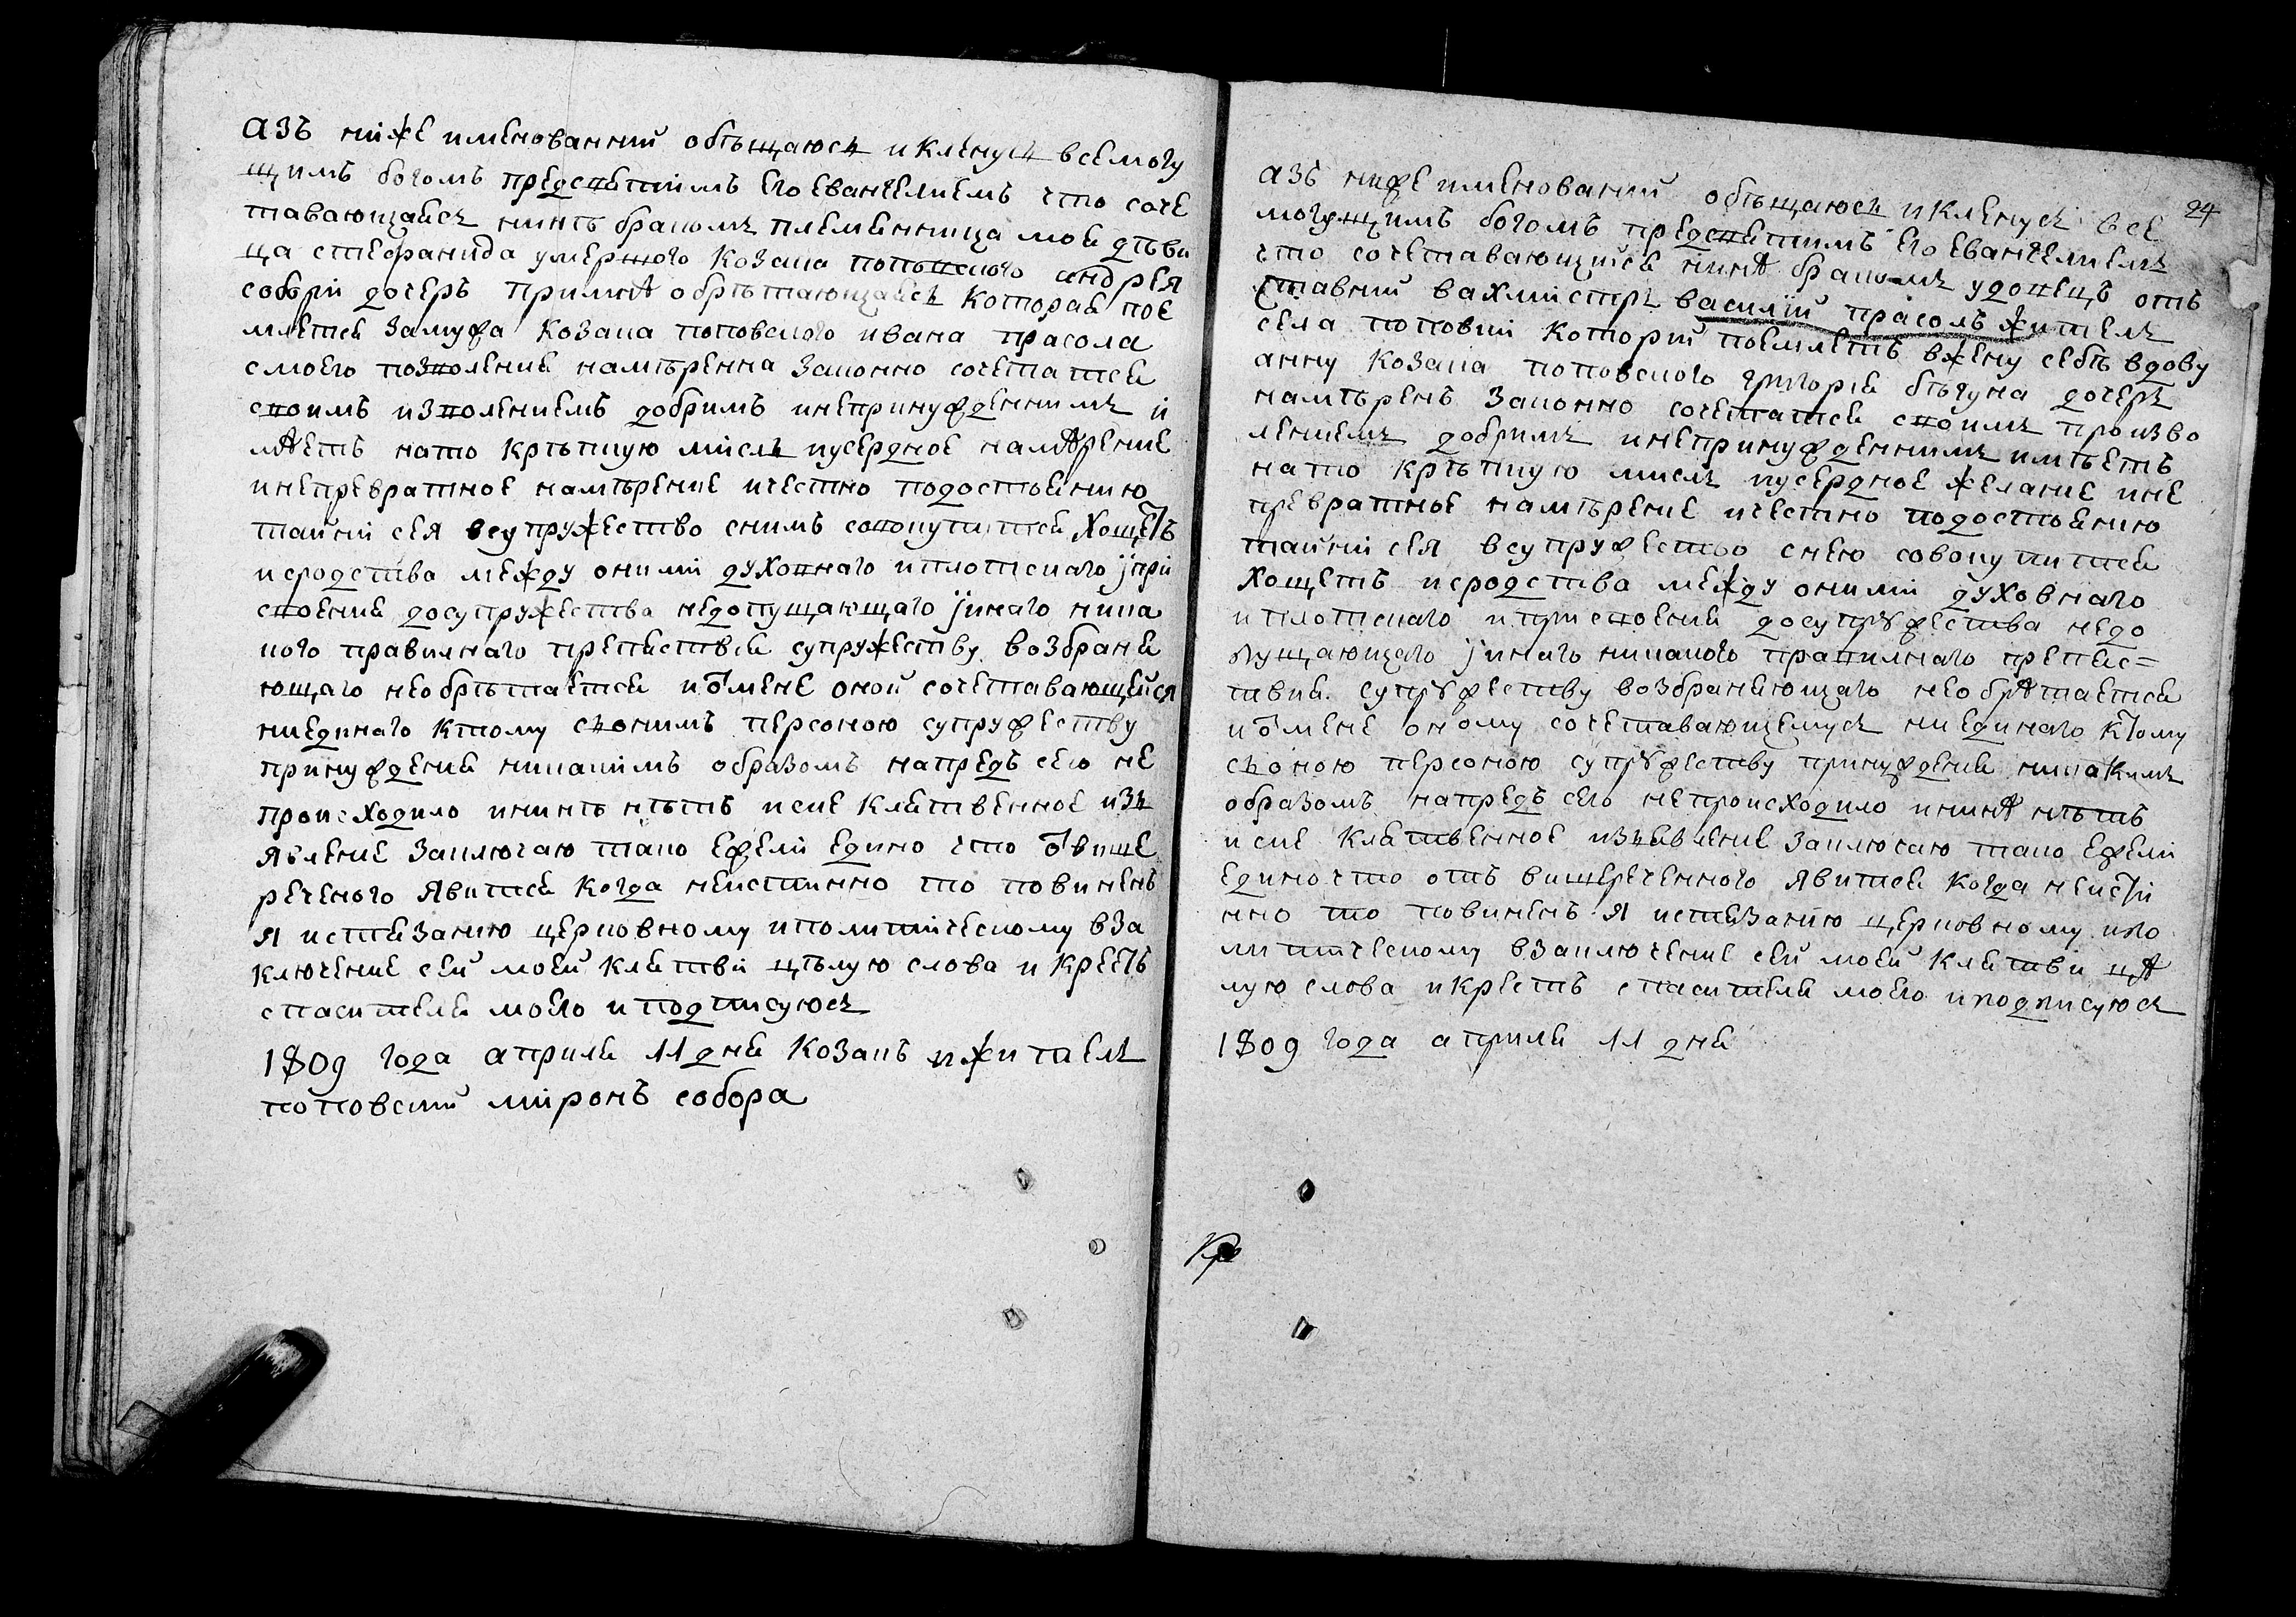 азъ нижеименованний обѣщаюся и кленуся всемогу
щимъ богомъ предсвятимъ его евангелиемъ что соче
тавающаяся нинѣ бракомъ племянница моя дѣви
ца стефанида умершого козака поповского андрея
собори дочеръ примнѣ обрѣтающаяся которая пое
млется замужа козака поповского ивана прасола
смоего позволения намѣренна законно сочетатся
своимъ изволениемъ добримъ инепринужденнимъ и
мѣетъ нато крѣпкую мисль иусердное намѣрение
инепревратное намѣрение ичестно подостоянию
тайни сея всупружество снимъ совокупитися хощетъ
исродства между оними духовнаго иплотскаго јпри
своения досупружества недопущающаго јинаго ника
кого правилнаго препятствия супружеству возбраня
ющаго необрѣтается иōмене оной сочетавающейся
ниединаго ктому сьонимъ персоною супружеству
принуждения никакимъ образомъ напредъ сего не
происходило ининѣ нѣтъ исие клятвенное изъ
явление заключаю тако ежели едино что ōвише
реченого явится когда неистинно то повиненъ
я истязанию церковному иполитическому вза
ключение сей моей клятви цѣлую слова и крестъ
спасителя моего иподписуюсь
1809 года априля 11 дня козакъ ижитель
поповский миронъ собора
24
азъ нижеименований обѣщаюся икленусь все
могущимъ богомъ предсвятимъ его евангелиемъ
что сочетавающийся нинѣ бракомъ удовецъ отъ
ставний вахмистръ василий прасолъ житель
села поповки которий поемлетъ вжену себѣ вдову
анну козака поповского григория бѣгуна дочеръ
намѣренъ законно сочетатся своимъ произво
лениемъ добримъ инепринужденнимъ имѣетъ
нато крѣпкую мисль иусердное желание ине
превратное намѣрение ичестно подостоянию
тайни сея всупружество снею совокупится
хощетъ исродства между оними духовнаго
иплотскаго иприсвоения досупружества недо
пущающаго јинаго никакого правилнаго препяс=
твия супружеству возбраняющаго необрѣтается
иōмене оному сочетавающемуся ниединаго ктому
сьоною персоною супружеству принуждения никакимъ
образомъ напредъ сего непроисходило ининѣ нѣтъ
исие клятвенное изъявление заключаю тако ежели
единочто отъ вишереченного явится когда неисти
нно то повиненъ я истязанию церковному ипо
литическому взаключение сей моей клятви цѣ
лую слова икрестъ спасителя моего иподписуюсь
1809 года априля 11 дня